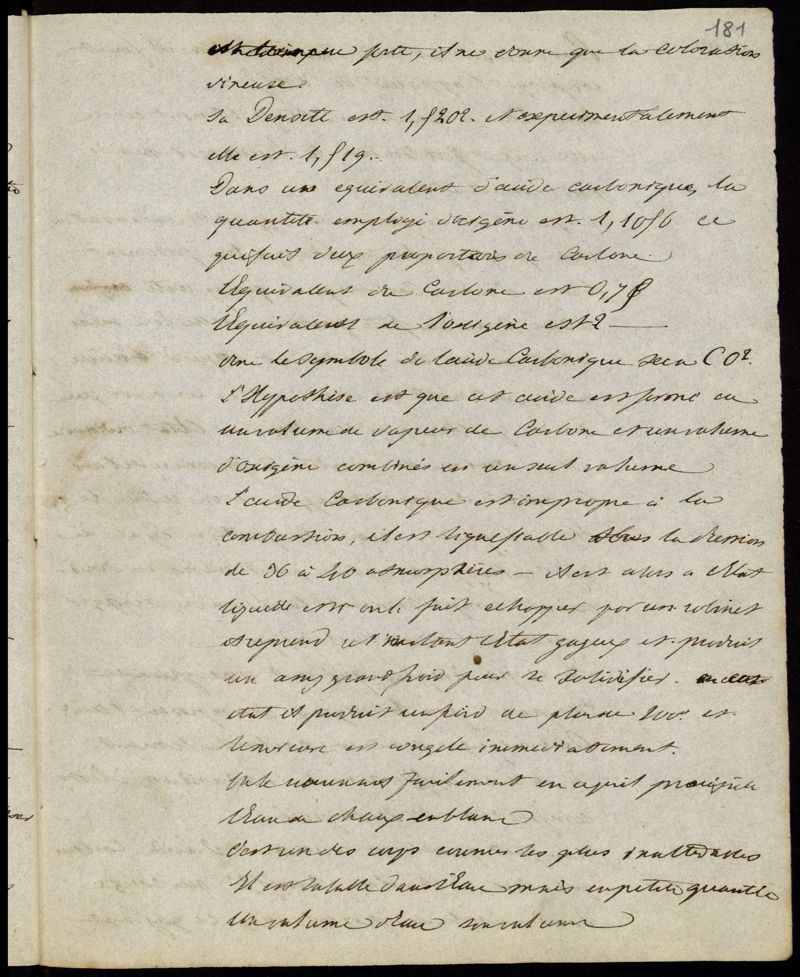 181
forte, il ne donne que la coloration
vineuse.
Sa Densité est. 1,520?. et experimentalement
elle est. 1,519..
Dans un equivalent d'acide carbonique, la
quantité employé d'oxigène est. 1,1056 ce
qui fait deux proportions de Carbone.
L'Equivalent du Carbone est 0,75
L'Equivalent de l'oxigène est 2 —
donc le symbole de l'acide Carbonique sera CO².
L'Hypothèse est que cet acide est formé en
un volume de vapeur de Carbone et un volume
d'oxigène combinés en un seul volume
L'acide Carbonique est impropre à la
combustion, il est liquefiable sous la Pression
de 36 à 40 atmosphères — il est alors a l'Etat
liquide et si on le fait echapper par un robinet
il reprend à l'instant l'Etat gazeux et produit
un assez grand froid pour se Solidifier. en cet
état il produit un froid de plus de 100°. et
le mercure est congelé immediatement.
On le reconnait facilement en ce qu'il précipite
l'Eau de chaux en blanc
C'est un des corps connus les plus inaltérables
Il est soluble dans l'Eau mais en petite quantité
un volume d'eau son volume